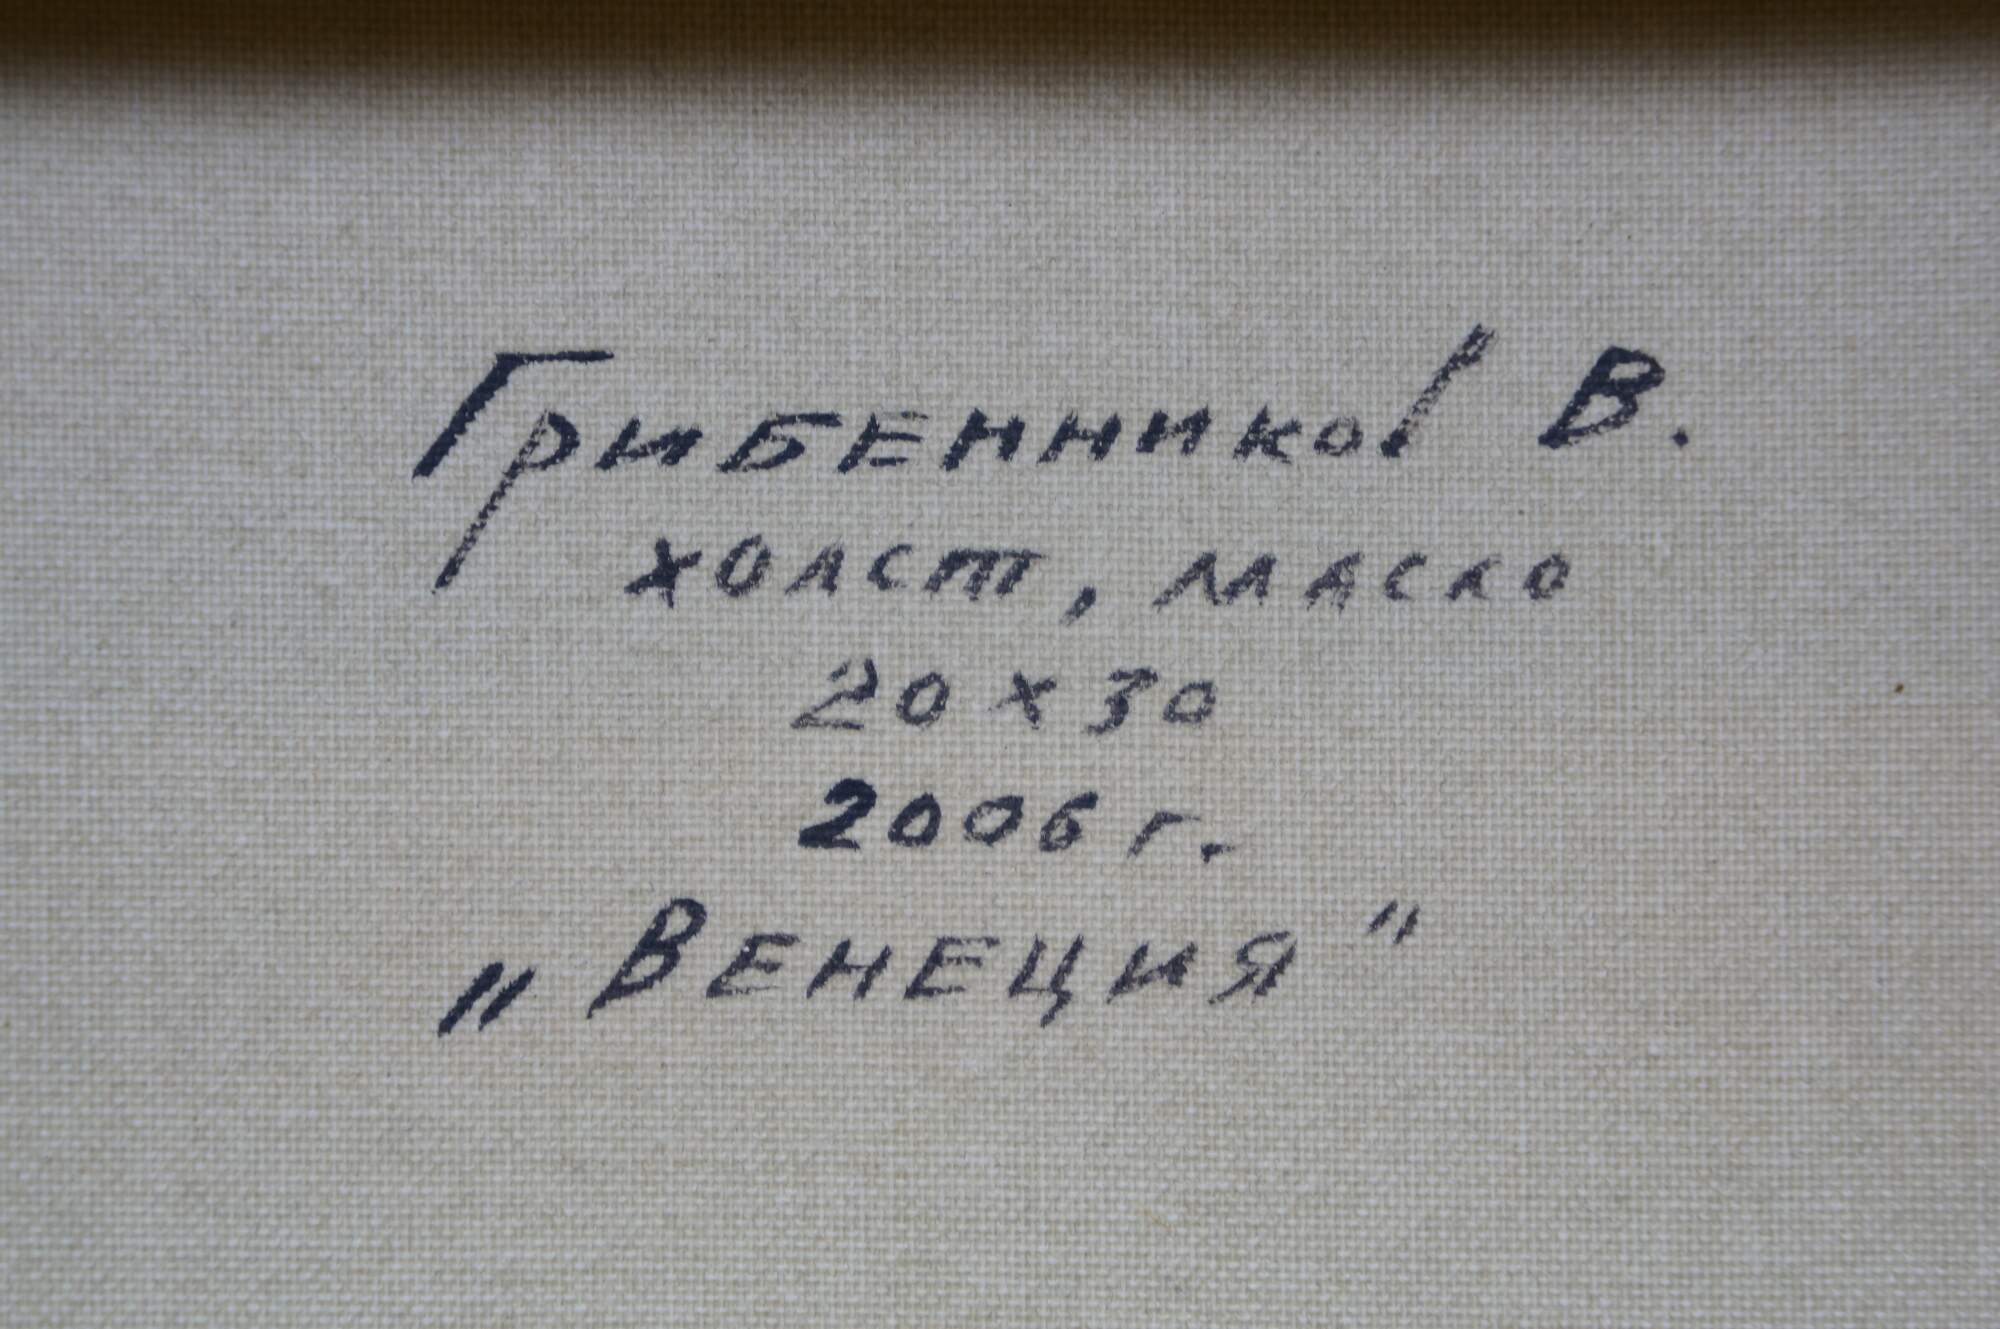 Грибенников В.
холст, масло
20 х 30
2006 г.
„Венеция"